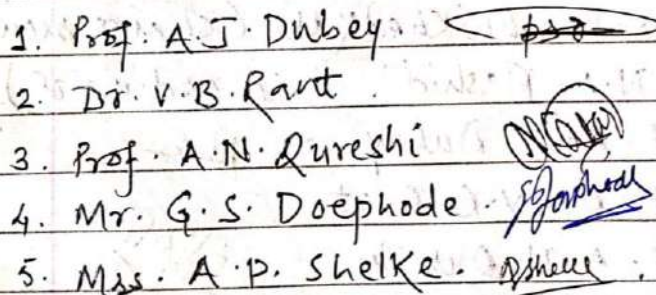 1. Prof. A.J. Dubey
2. Dr. V.B. Raut
3. Prof. A.N. Qureshi
4. Mr. G.S. Doephode.
5. Mrs. A.P. Shelke.